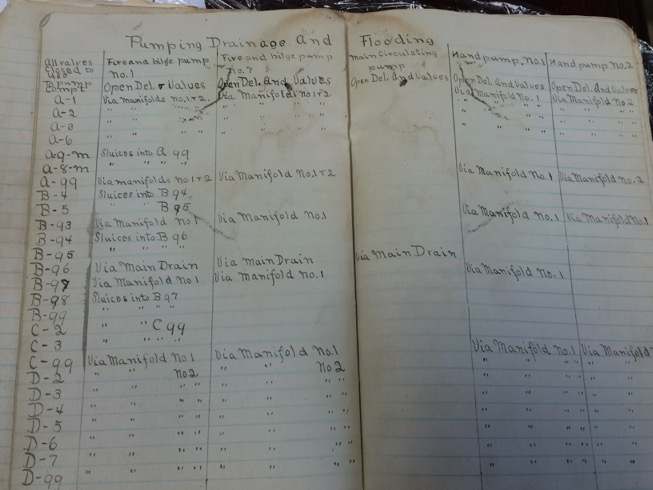 Pumping Drainage And Flooding
All valves closed to Fire and bilge pump Fire and bilge pump Main Circulating Hand pump No.1 Hand pump No.2
No.1 pump
Open Del. Valves Open Del. And Valves Open Del. And Valves Open Del. And Valves Open Del. And Valves
A-1 Via Manifolds no.1+2 Via Manifolds no.1+2 Via Manifold No.1 Via Manifold No.2
A-2 " " " " " " " " " " " "
A-3 " " " " " " " " " " " "
A-6 " " " " " " " " " " " "
A-9-m Sluices into A 99
A-8-m " " " "
A-99 Via manifolds no.1+2 Via Manifold No.1+2 Via Manifold No.1 Via Manifold No.2
B-4 Sluices into B94
B-5 " " B95
B-93 Via Manifold No.1 Via Manifold No.1 Via Manifold No.1 Via Manifold No.1
B-94 Sluices into B96
B-95 " " "
B-96 Via Main Drain Via Main Drain Via Main Drain
B-97 Via Manifold No.1 Via Manifold No.1 Via Manifold No.1
B-98 Sluices into B97
B-99 " " "
C-2 " " C99
C-3 " " "
C-99 Via Manifold No.1 Via Manifold No.1 Via Manifold No.1 Via Manifold
D-2 " " No2 " " No2 " " " " "
D-3 " " " " " " " " " " " "
D-4 " " " " " " " " " " " "
D-5 " " " " " " " " " " " "
D-6 " " " " " " " " " " " "
D-7 " " " " " " " " " " " "
D-99 " " " " " " " " " " " "